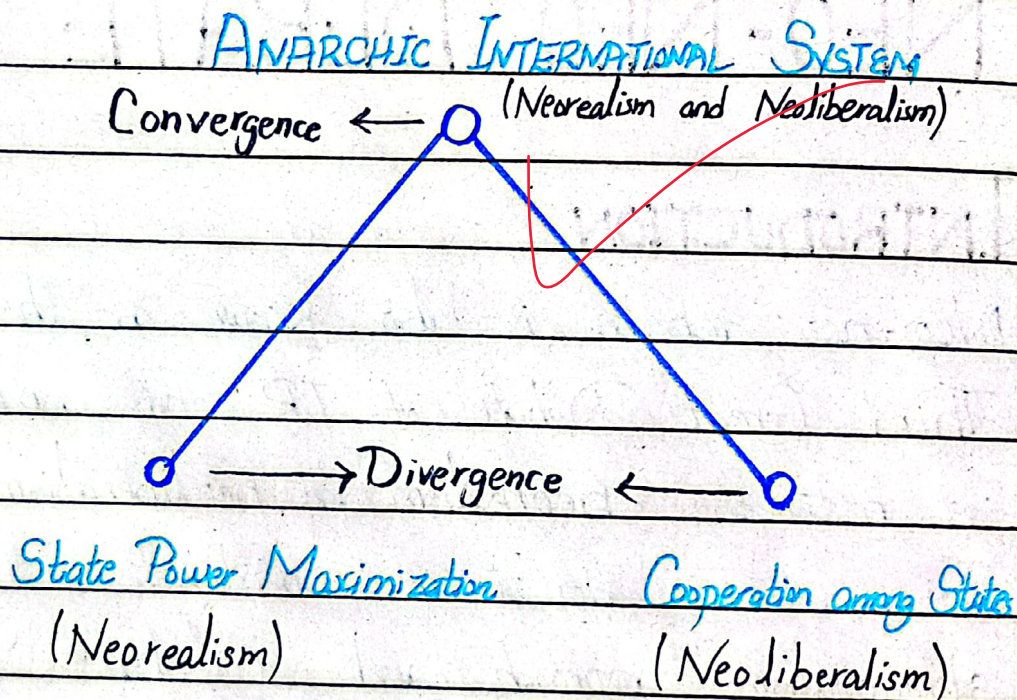 ANARCHIC INTERNATIONAL SYSTEM
(Neorealism and Neoliberalism)
Convergence
Divergence
State Power Maximization
Cooperation among States
(Neorealism)
(Neoliberalism)